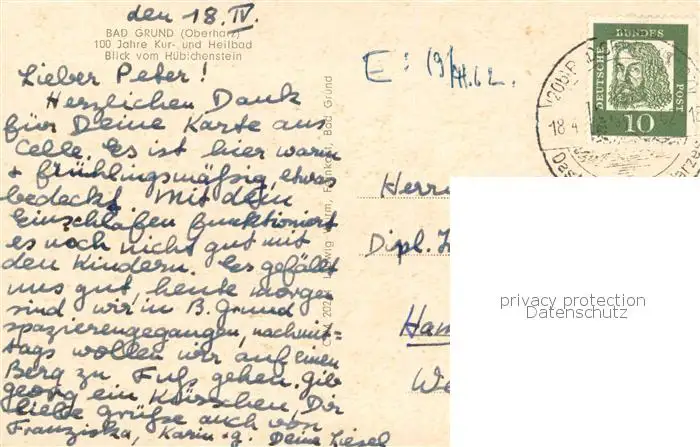 den 18. IV.
BAD GRUND (Oberharz)
100 Jahre Kur- und Heilbad
Blick vom Hübichenstein
Lieber Peter!
Herzlichen Dank
für Deine Karte aus
Celle. Es ist hier warm
+ frühlingsmäßig, etwas
bedeckt. Mit dem
Einschlafen funktioniert
es noch nicht gut mit
den Kindern. Es gefällt
uns gut, heute morgen
sind wir in B. Grund
spazierengegangen, nachmit-
tags wollen wir auf einen
Berg zu Fuß gehen. Gib
Georg ein Küsschen, Dir
liebe Grüße auch von
Franziska, Karin + g. Deine Liesel
Ludwig Wurm, Bad Grund
E: 19/4.62.
DEUTSCHE BUNDESPOST
10
18.4.
Herrn
Dipl. I
Ham
We
privacy protection
Datenschutz